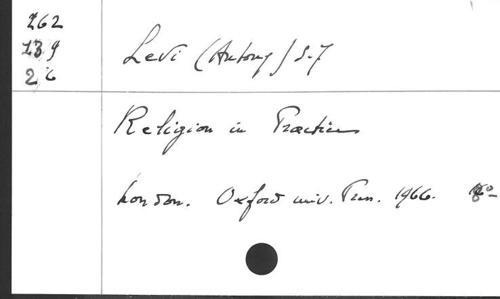 262
239
26
Levi (Antony) S.J
Religion in Practice
London. Oxford univ. Press. 1966. 8º